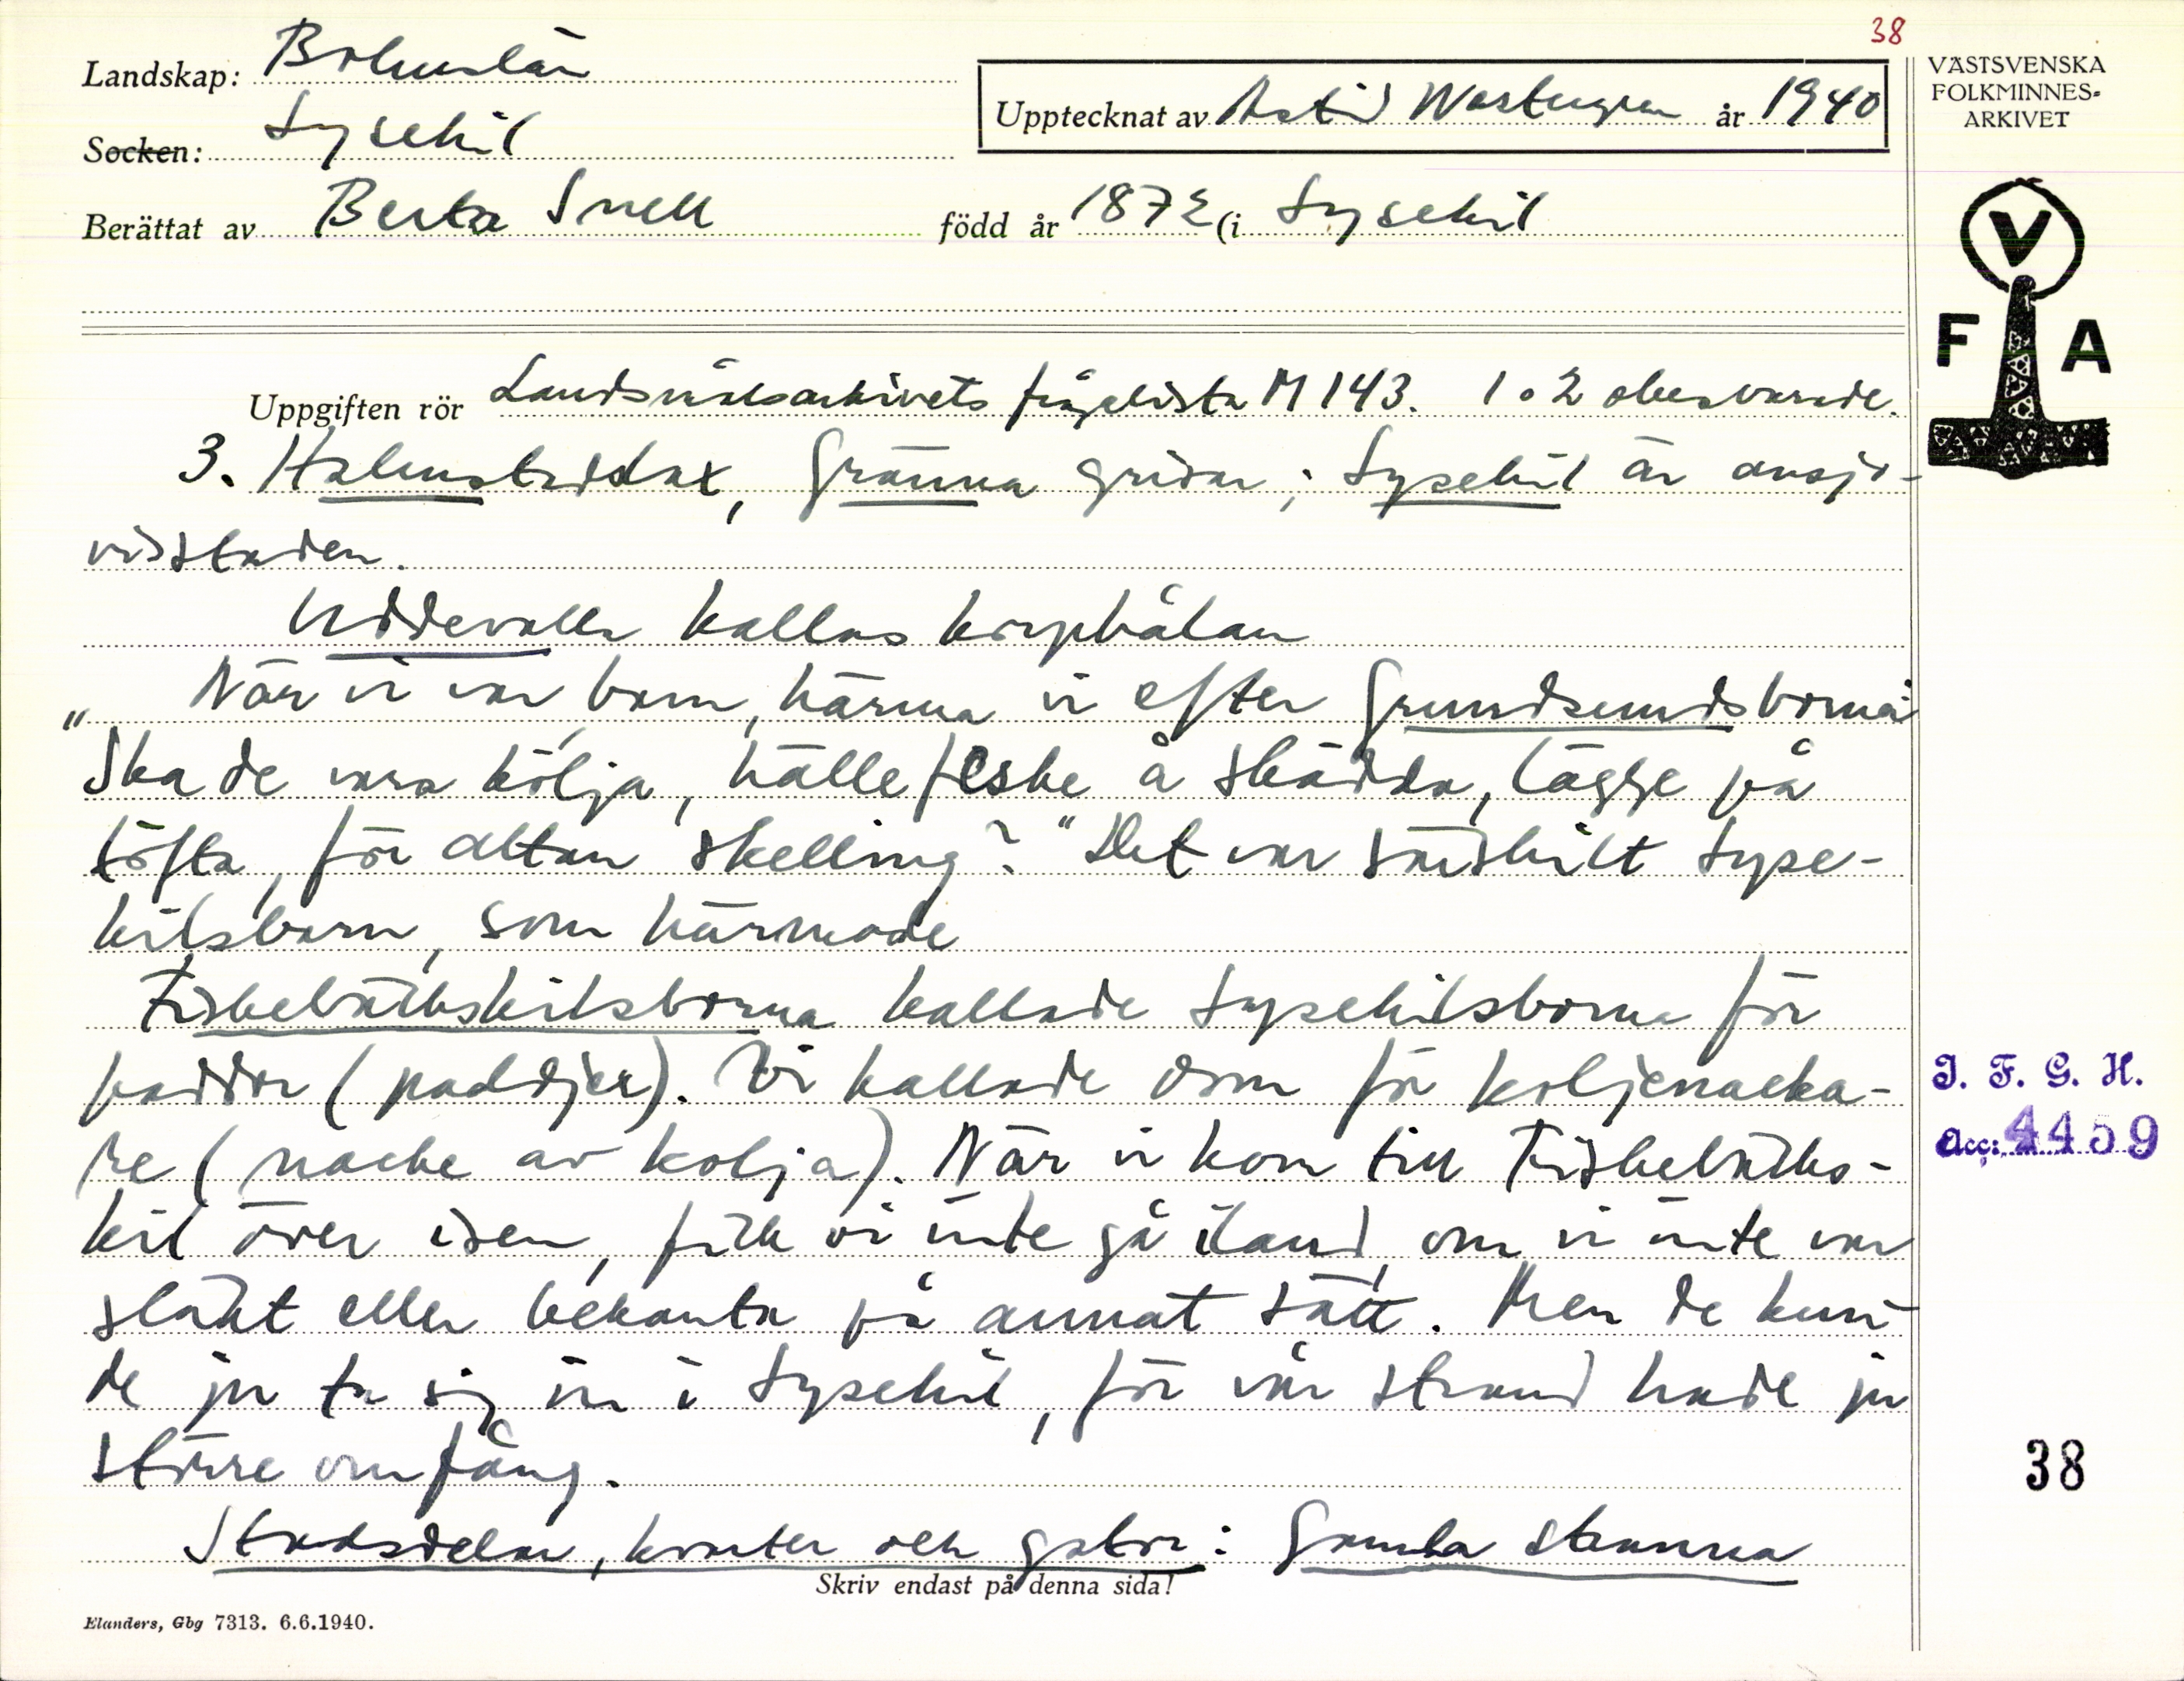 38
Landskap: Bohuslän
Socken: Lysekil
Upptecknat av Astrid Wastengren år 1940
Berättat av Berta Snell född år 1872 (i Lysekil
VÄSTSVENSKA
FOLKMINNES-
ARKIVET
V
F A
Uppgiften rör Landsmålsarkivets frågelista M 143. 1 o 2 obesvarade.
3. Halmstadslax, Gränna grisar; Lysekil är ansjo-
visstaden.
Uddevalla kallas korphålan
"När vi var barn, härma vi efter Grundsundsborna:
Ska de vara kölja, hällefleske å skädda, lägge på
töfta, för åttan skelling?" Det var särskilt Lyse-
kilsbarn, som härmade
Fiskebäckskilsborna kallade Lysekilsborna för
paddor (paddjer). Vi kallade dom för koljenacka-
re (nacke av kolja). När vi kom till Fiskebäcks-
kil över isen, fick vi inte gå iland, om vi inte var
släkt eller bekanta på annat sätt. Men de kun-
de ju ta sig in i Lysekil, för vår strand hade ju
större omfång.
Stadsdelar, kvarter och gator: Gamla stranna
I. F. G. H.
Acc: 4459
38
Skriv endast på denna sida!
Elanders, Gbg 7313. 6.6.1940.